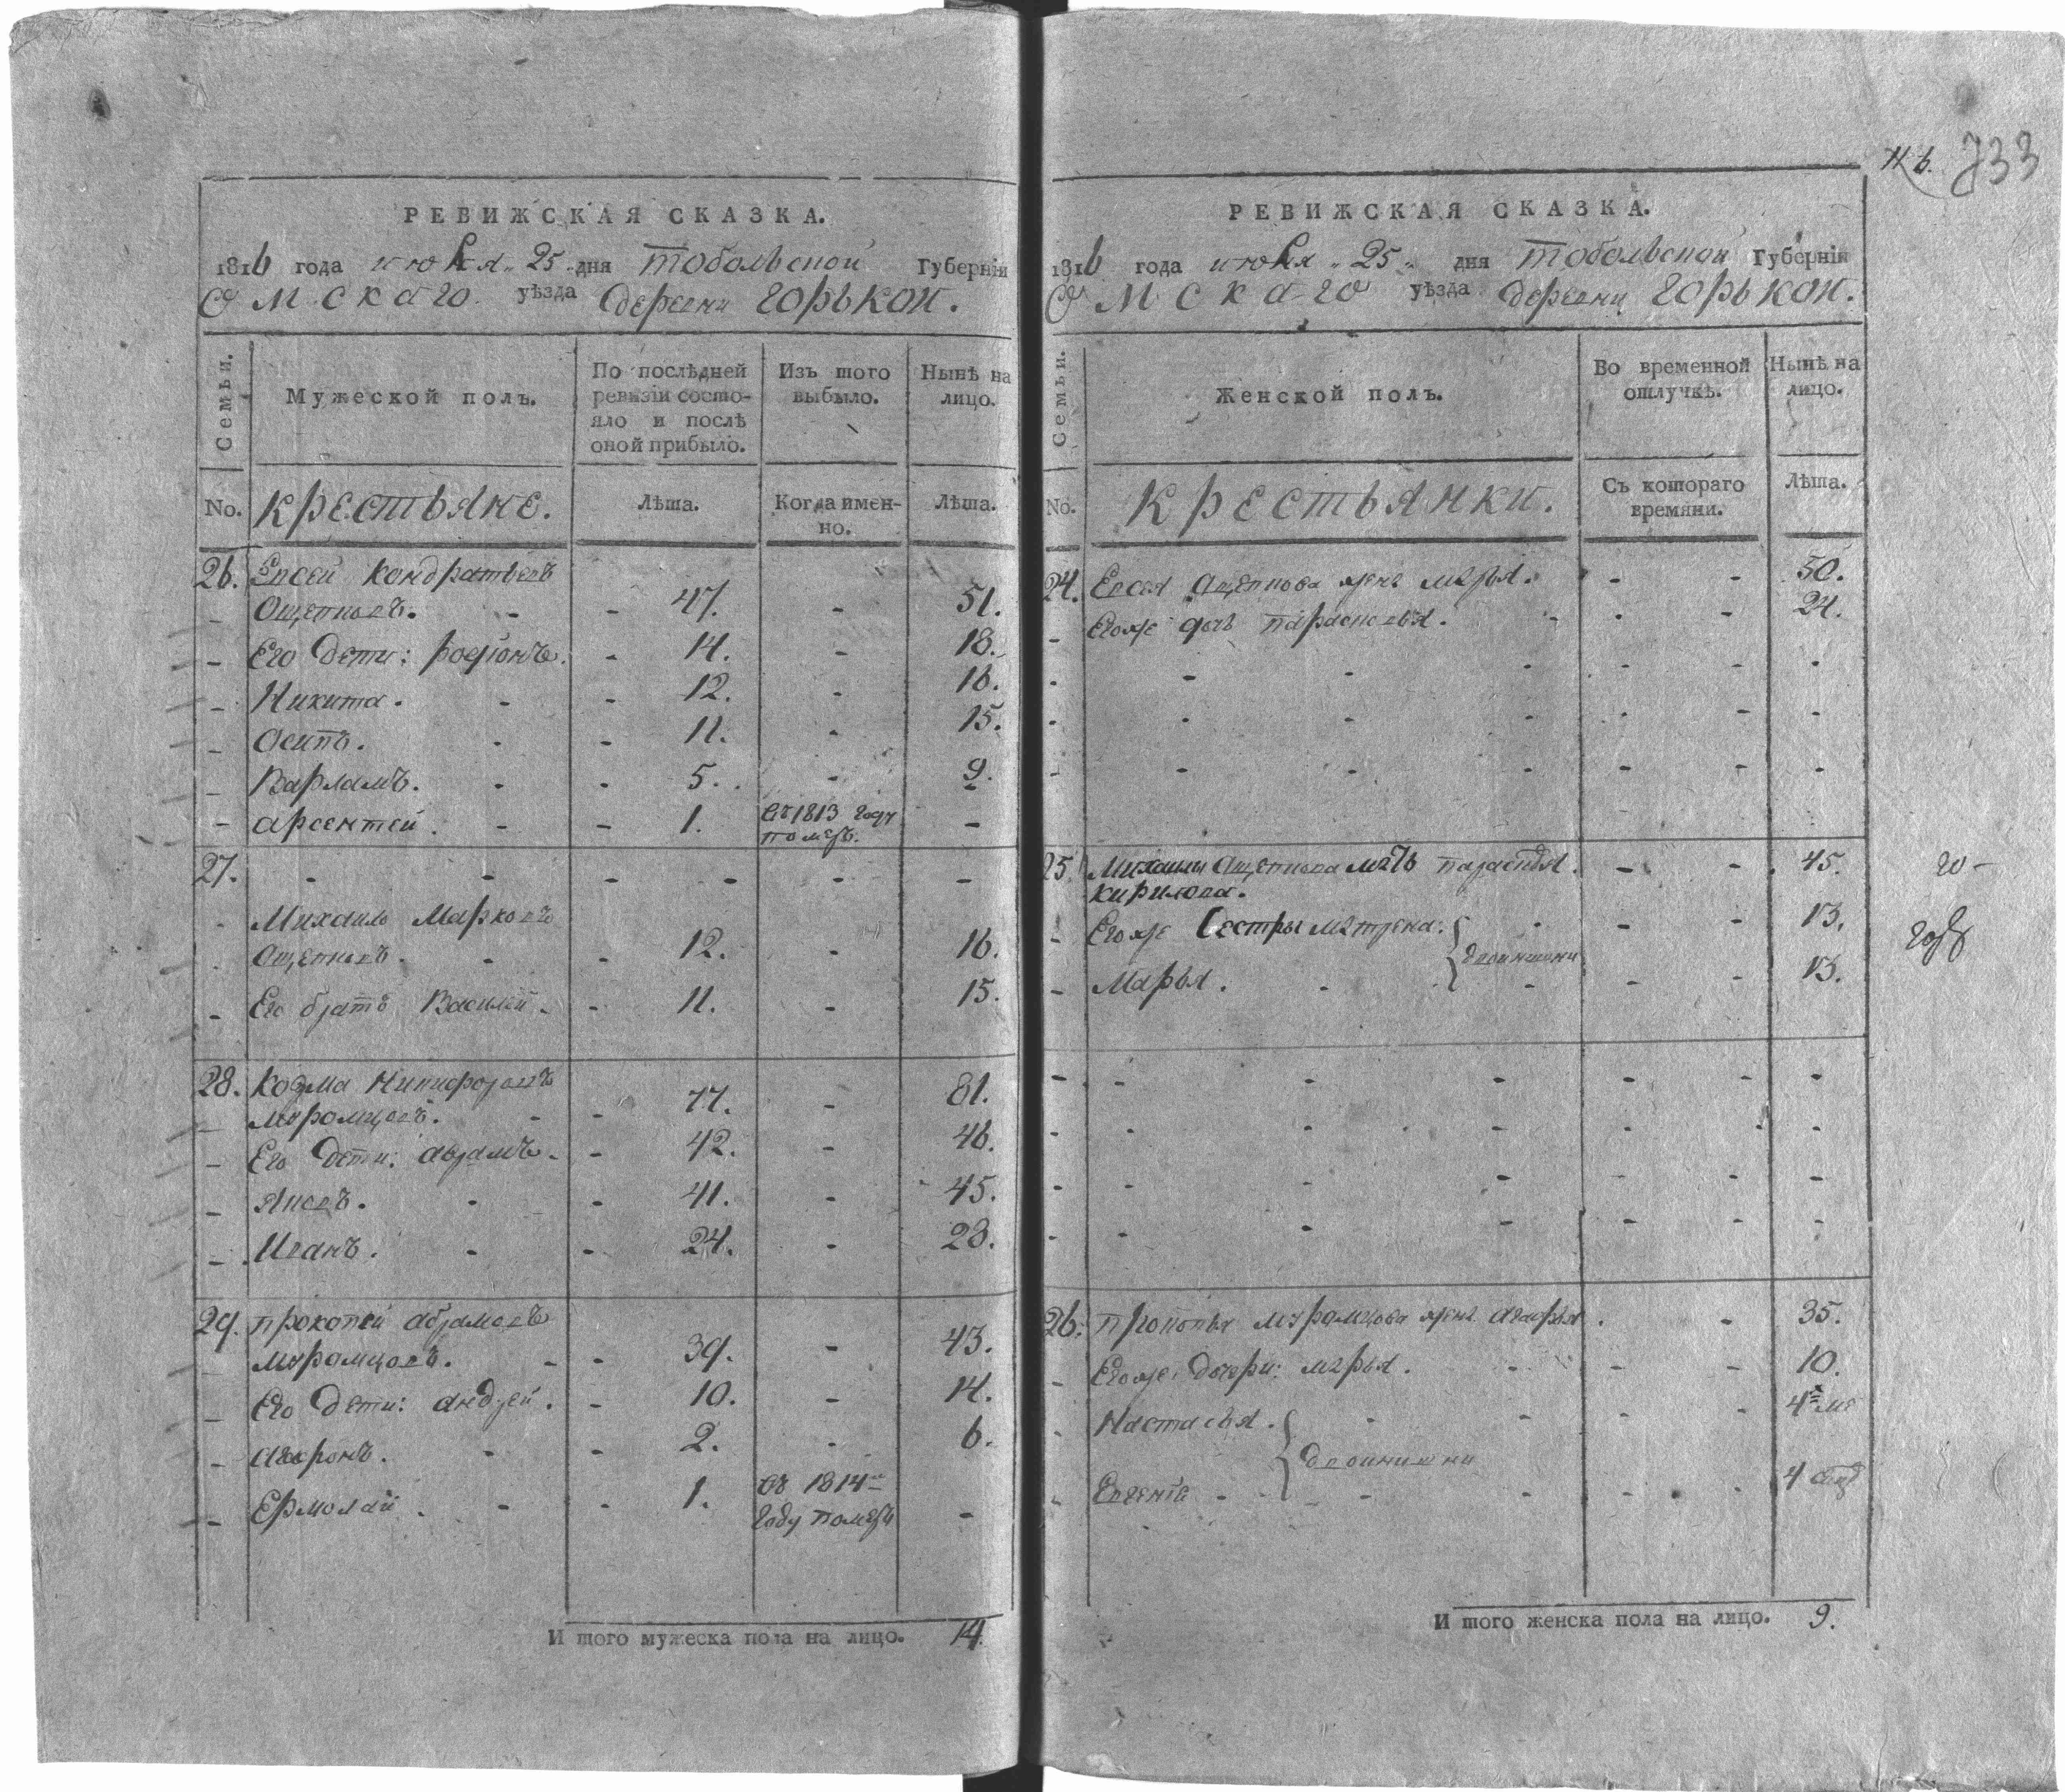 РЕВИЖСКАЯ СКАЗКА.
1816 года июля 25 дня тобольской Губерніи
Омскаго уѣзда деревни горькой.
Семьи.
Мужеской полъ.
По послѣдней ревизіи состояло и послѣ оной прибыло.
Изъ того выбыло.
Нынѣ на лицо.
No. крестьяне.
Лѣта.
Когда именно.
Лѣта.
26. Евсей Кондратьевъ
Ощепковъ. - - 47. - 51.
- Его дети: родіонъ. - 14. - 18.
- Никита. - - 12. - 16.
- Осипъ. - - 11. - 15.
- Варламъ. - - 5. - 9.
- арсентей. - - 1. въ 1813 году -
27. - - - - - -
- Михаило Марковъ
Ощепковъ. - - 12. - 16.
- Его братъ Василей. - 11. - 15.
28. Козма Никифоровъ
муромцовъ. - - 77. - 81.
- Его дети: аврамъ. - 42. - 46.
- Яковъ. - - 41. - 45.
- Иванъ. - - 24. - 28.
29. прокопей абрамовъ
муромцовъ. - - 39. - 43.
- Его дети: андрей. - 10. - 14.
- - 2. - 6.
- Ермолай. - - 1. въ 1814 -
году
И того мужеска пола на лицо. 14.
733
РЕВИЖСКАЯ СКАЗКА.
1816 года июля 25 дня тобольской Губерніи
Омскаго уѣзда деревни горькой.
Семьи.
Женской полъ.
Во временной отлучкѣ.
Нынѣ на лицо.
No. крестьянки.
Съ котораго времяни.
Лѣта.
24. Евсея Ощепкова жена марья. - - 50.
- Егоже дочь парасковья. - - - 24.
25. Михаилы Ощепкова мать - - 45.
кирилова.
- Егоже сестры матрена: - - - 13.
двойнишни
- Марья. - - - - 13.
26. прокопья муромцова жена - 35.
- Егоже дочери: марья. - - - 10.
- Настасья. - - - - 4
двойнишни
- Евгенія - - - - - 4
И того женска пола на лицо. 9.